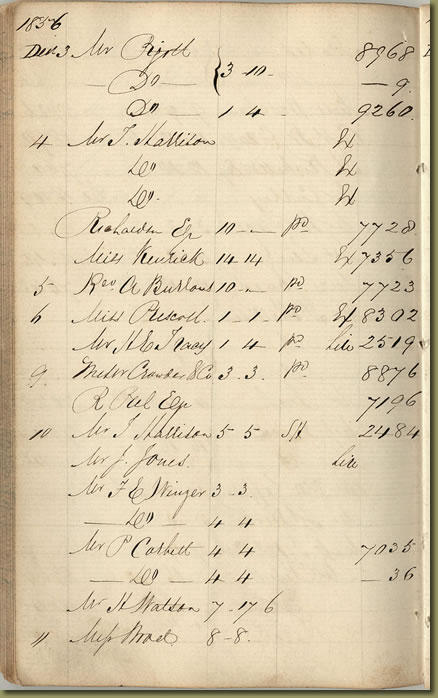 1836
Dec 3 Mr Pigott 3 10 - 8968
— Do — — 9
Do 1 4 - 9260
4 Mr T. Hallison Ex
Do Ex
Do. Ex
Richardson Esq 10 - — pd 7728
Miss Kenrick 14 14 Ex 7356
5 Revd A Burbous 10 - — pd 7723
6 Miss Prescott. 1 - 1 - pd Ex 8302
Mr H E Tracy 1 4 pd Lite 2519
9 Messrs Crowder & Co 3 - 3. pd 8876
R Peel Esqr 7196
10 Mr T Hallison 5 5 SH 2484
Mr J. Jones. Lite
Mr F E Winzer 3 - 3.
— Do — 4 4
Mr P Corbett 4 4 7035
— Do — 4 4 — 36
Mr H Watson 7 - 17 6
11 Miss 8 - 8.